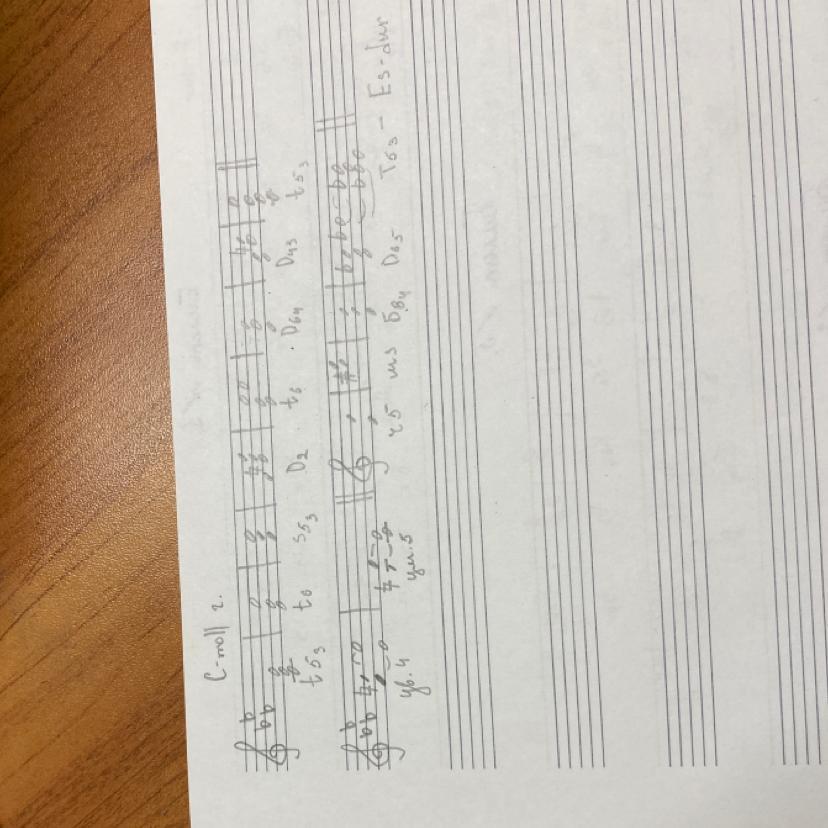 C-moll г.
t53 t6 s53 D2 t6 D64 D43 t53
ув.4 ум.5 ч5 м3 Б.64 D65 T53 - Es-dur